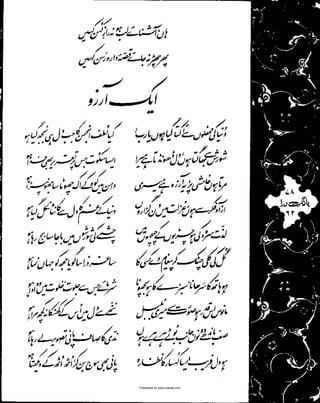 ہاں آشنائے لب ہو نہ رازِ کہن کہیں
پھر چھڑ نہ جائے قصّۂ دار و رسن کہیں
ایک آرزو
دنیا کی محفلوں سے اُکتا گیا ہوں یا رب کیا لطف انجمن کا جب دل ہی بجھ گیا ہو
شورش سے بھاگتا ہوں، دل ڈھونڈتا ہے میرا ایسا سکوت جس پر تقریر بھی فدا ہو
مرتا ہوں خامشی پر، یہ آرزو ہے میری دامن میں کوہ کے اک چھوٹا سا جھونپڑا ہو
آزاد فکر سے ہوں، عزلت میں دن گزاروں دنیا کے غم کا دل سے کانٹا نکل گیا ہو
لذّت سرود کی ہو چڑیوں کے چہچہوں میں چشمے کی شورشوں میں باجا سا بج رہا ہو
گل کی کلی چٹک کر پیغام دے کسی کا ساغر ذرا سا گویا مجھ کو جہاں نما ہو
ہو ہاتھ کا سرہانا، سبزے کا ہو بچھونا شرمائے جس سے جلوت، خلوت میں وہ ادا ہو
مانوس اس قدر ہو صورت سے میری بلبل ننھے سے دل میں اس کے کھٹکا نہ کچھ مرا ہو
صف باندھے دونوں جانب بوٹے ہرے ہرے ہوں ندی کا صاف پانی تصویر لے رہا ہو
ہو دل فریب ایسا کہسار کا نظارہ پانی بھی موج بن کر اُٹھ اُٹھ کے دیکھتا ہو
بانگِ درا
٦٢
Presented by www.ziaraat.com